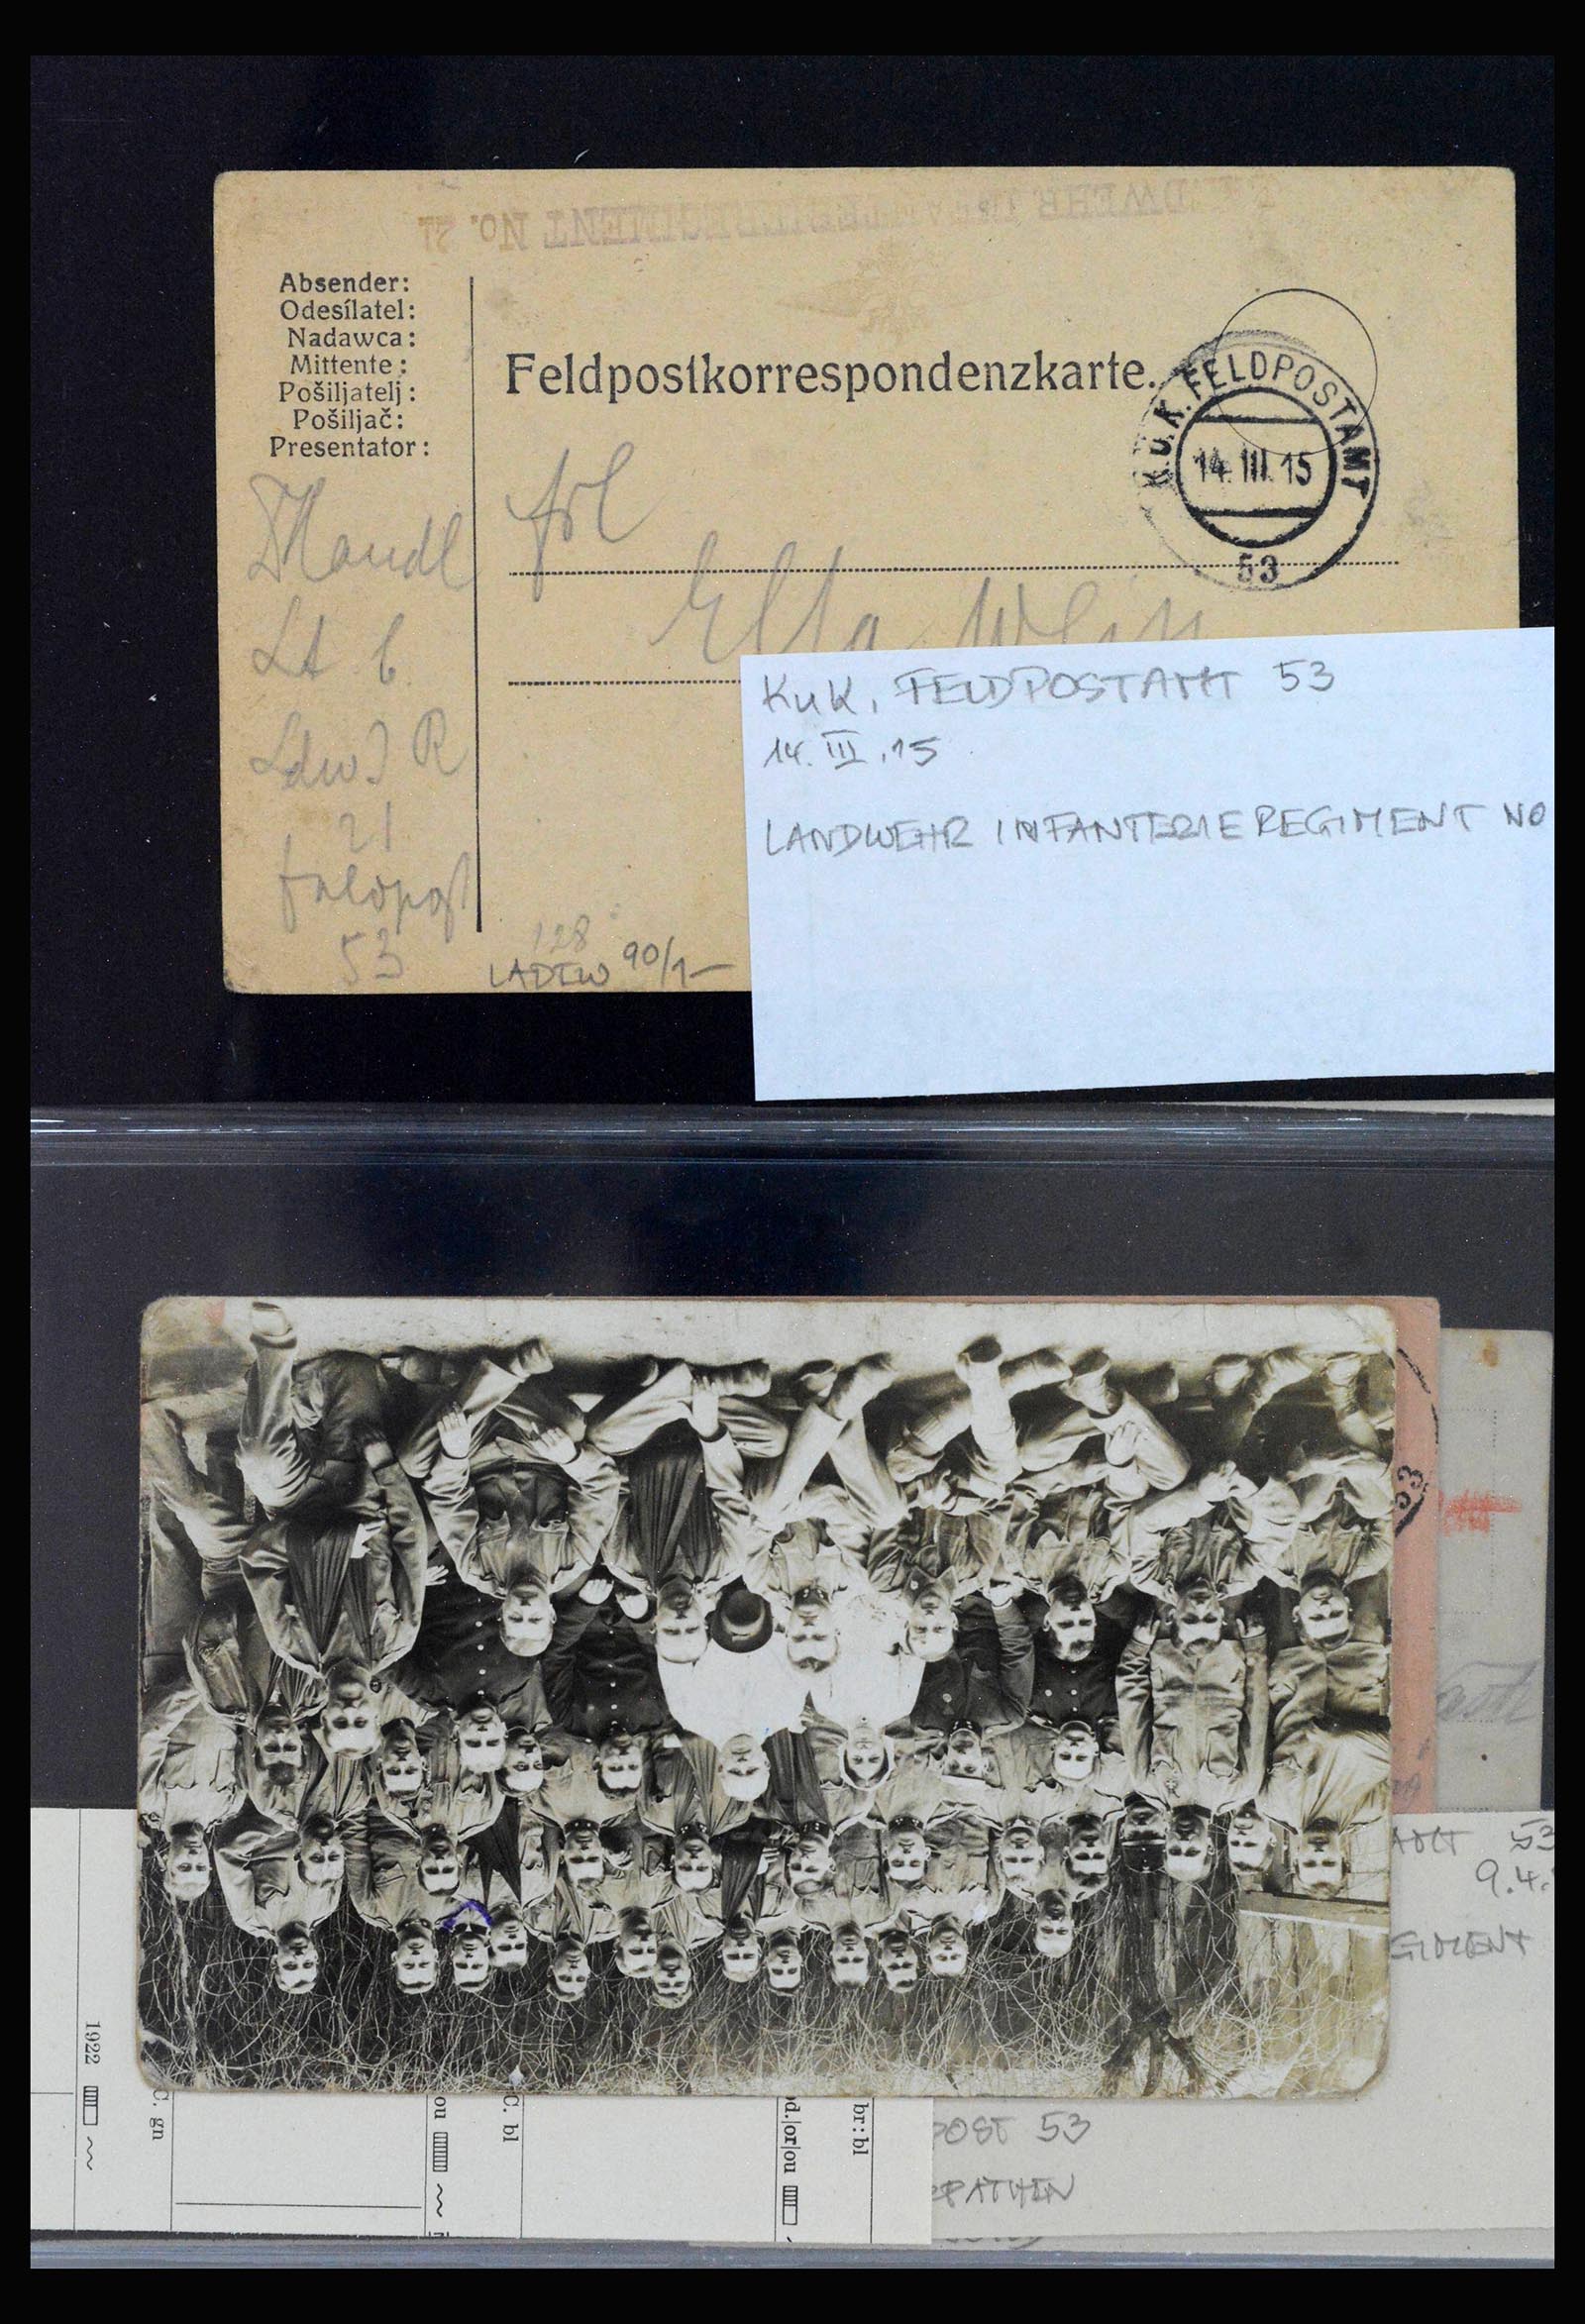 DWEHR INFANTERIEREGIMENT No. 21
Absender:
Odesílatel:
Nadawca:
Mittente:
Pošiljatelj:
Pošiljač:
Presentator:
Feldpostkorrespondenzkarte.
K.u.K. FELDPOSTAMT
14. III. 15
53
Frl
Ella
Mandl
Lt b.
LdwJR
21
Feldpost
53
128
90/1—
KuK. FELDPOSTAMT 53
14. III. 15
LANDWEHR INFANTERIEREGIMENT NO
53
53
9.4.
GIMENT
1922
C. gn
ou
C. bl
d./or/ou
br:bl
POST 53
RPATHEN